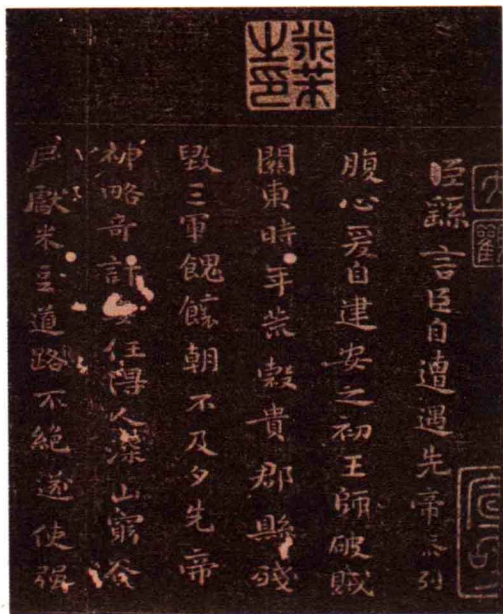 米芾
之印
大觀
臣繇言臣自遭遇先帝忝列
腹心爰自建安之初王師破賊
關東時年荒穀貴郡縣殘
毀三軍餽饟朝不及夕先帝
神略奇計委任得人深山窮谷
民獻米豆道路不絕遂使強